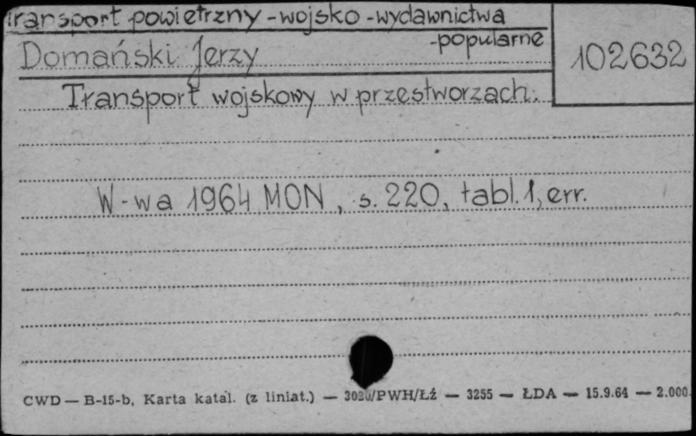 Transport powietrzny - wojsko - wydawnictwa
- popularne
Domański Jerzy
102632
Transport wojskowy w przestworzach.
W-wa 1964 MON, s. 220, tabl. 1, err.
CWD — B-15-b, Karta katal. (z liniat.) — /PWH/Łź — 3255 — ŁDA — 15.9.64 — 2.000.